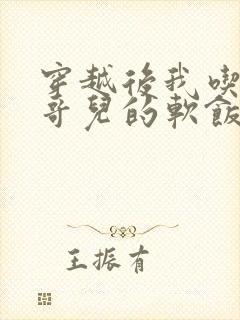 穿越後我喫
哥兒的軟飯
王振有